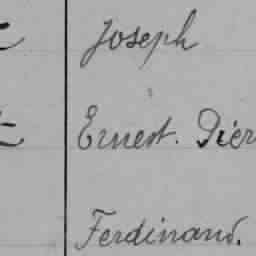 Joseph
Ernest. Pier
Ferdinand.